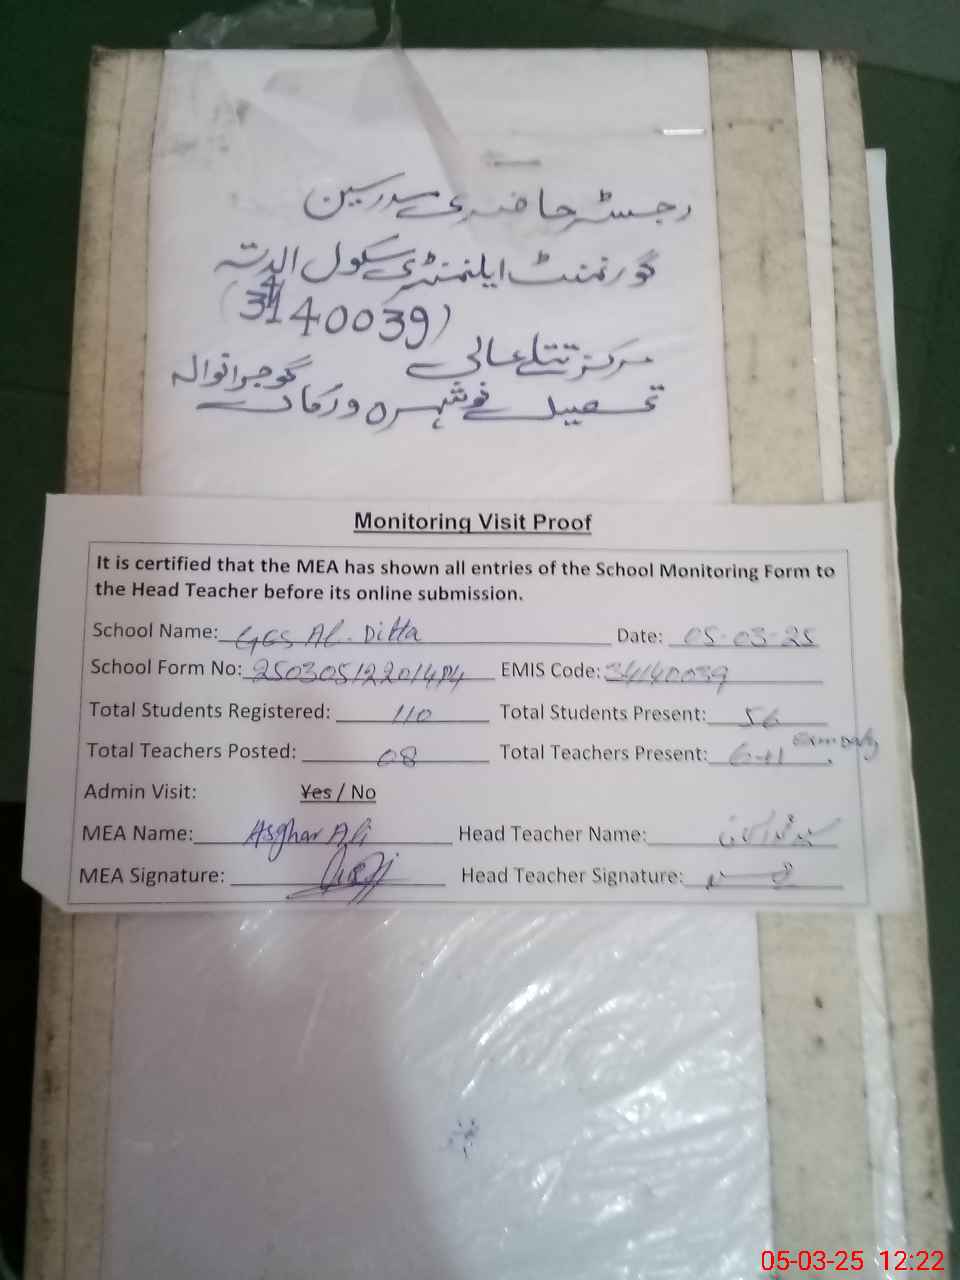 رجسٹر حاضری مدرسین
گورنمنٹ ایلیمنٹری سکول الدتہ
(34140039)
مرکز تتلے عالی
تحصیل نوشہرہ ورکاں گوجرانوالہ
Monitoring Visit Proof
It is certified that the MEA has shown all entries of the School Monitoring Form to
the Head Teacher before its online submission.
School Name: GES Al-Ditta Date: 05-03-25
School Form No: EMIS Code: 34140039
Total Students Registered: 110 Total Students Present: 56
Total Teachers Posted: 08 Total Teachers Present: 6+1 Exam Duty
Admin Visit: Yes / No
MEA Name: Asghar Ali Head Teacher Name:
MEA Signature: Head Teacher Signature:
05-03-25 12:22